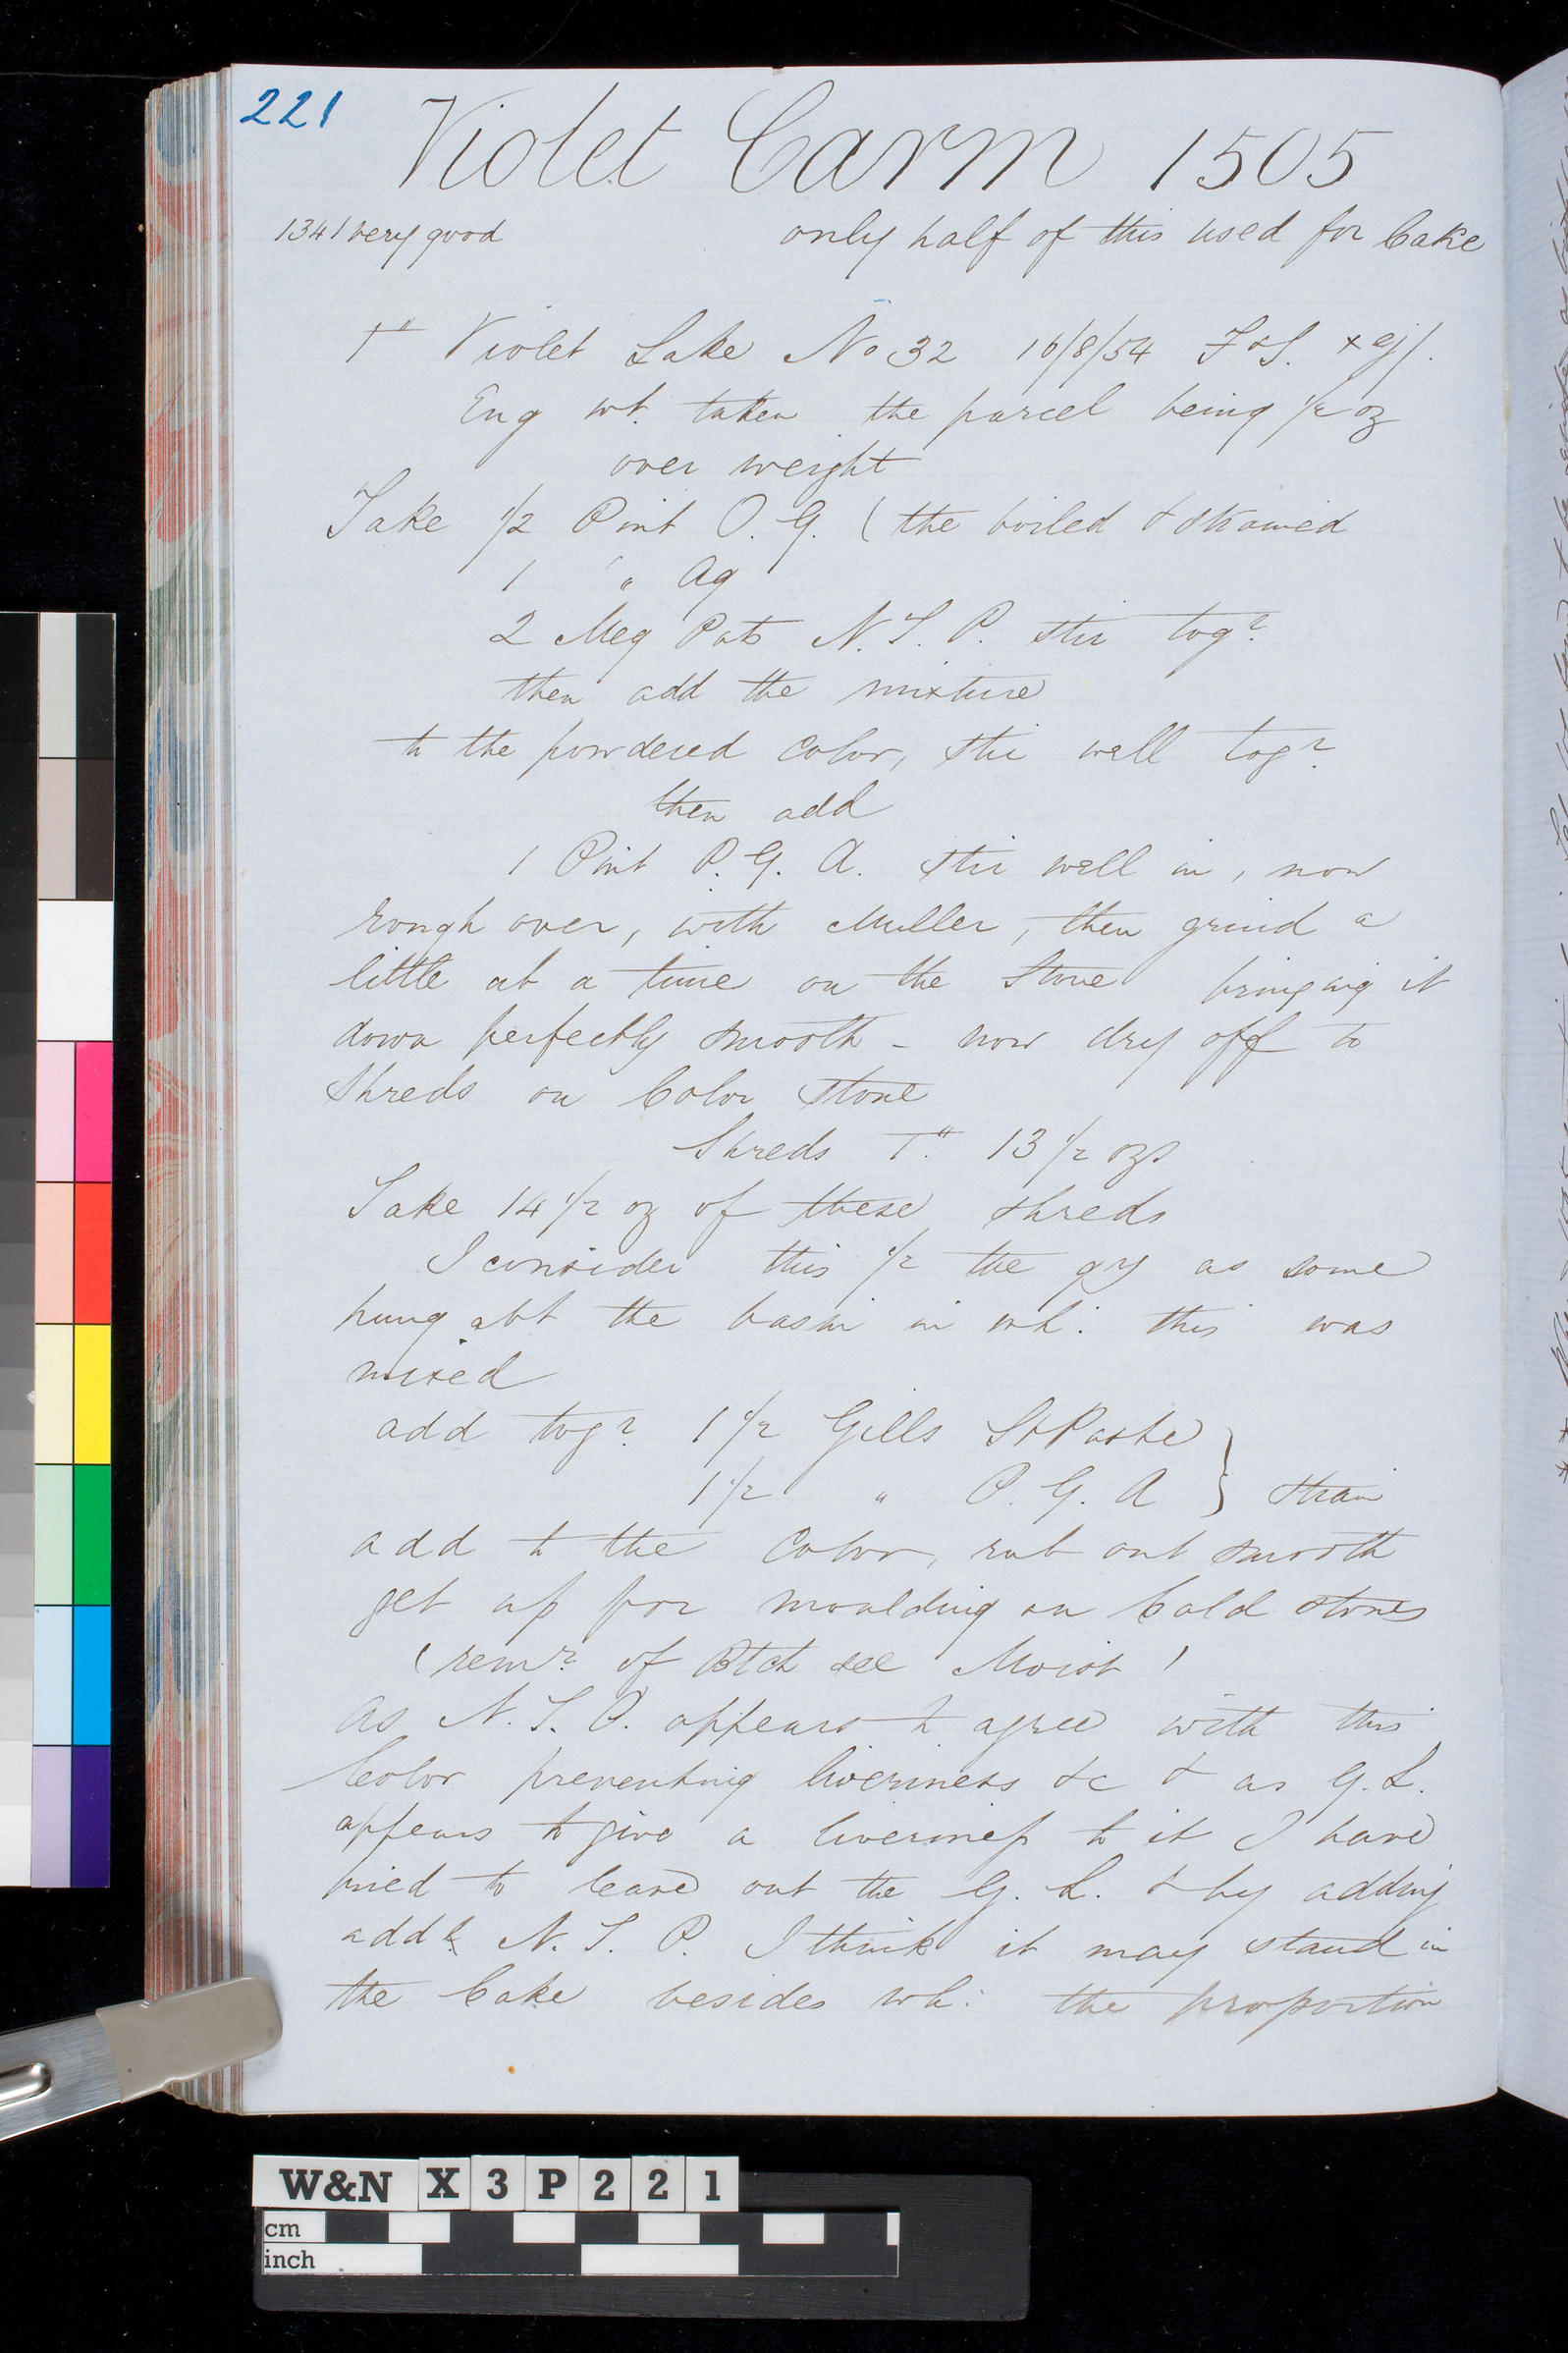 221
Violet Carm 1505
1341 very good only half of this used for Cake
T" Violet Lake No 32 16/8/54 F & S.
Eng wt. taken the parcel being 1/2 oz
over weight
Take 1/2 Pint O. G. ( the boiled & strained
1 " Aq
2 Meg Pots N. S. P. stir togr
then add the mixture
to the powdered Color, stir well togr
then add
1 Pint P. G. A. stir well in, now
rough over, with Muller, then grind a
little at a time on the Stone bringing it
down perfectly smooth - now dry off to
shreds on Color Stone
Shreds T". 13 1/2 ozs
Take 14 1/2 oz of these shreds
I consider this 1/2 the qy as some
hung abt the basin in wh: this was
mixed
add togr 1 1/2 Gills St Paste }
1 1/2 " P. G. A } strain
add to the Color, rub out smooth
get up for moulding on Cold stones
( remr of Btch see Moist )
As N. S. P. appears to agree with this
Color preventing liveriness &c & as G. L.
appears to give a liveriness to it I have
tried to leave out the G. L. & by adding
addl N. S. P. I think it may stand in
the Cake besides wh: the proportion
W&N X 3 P 2 2 1
cm
inch